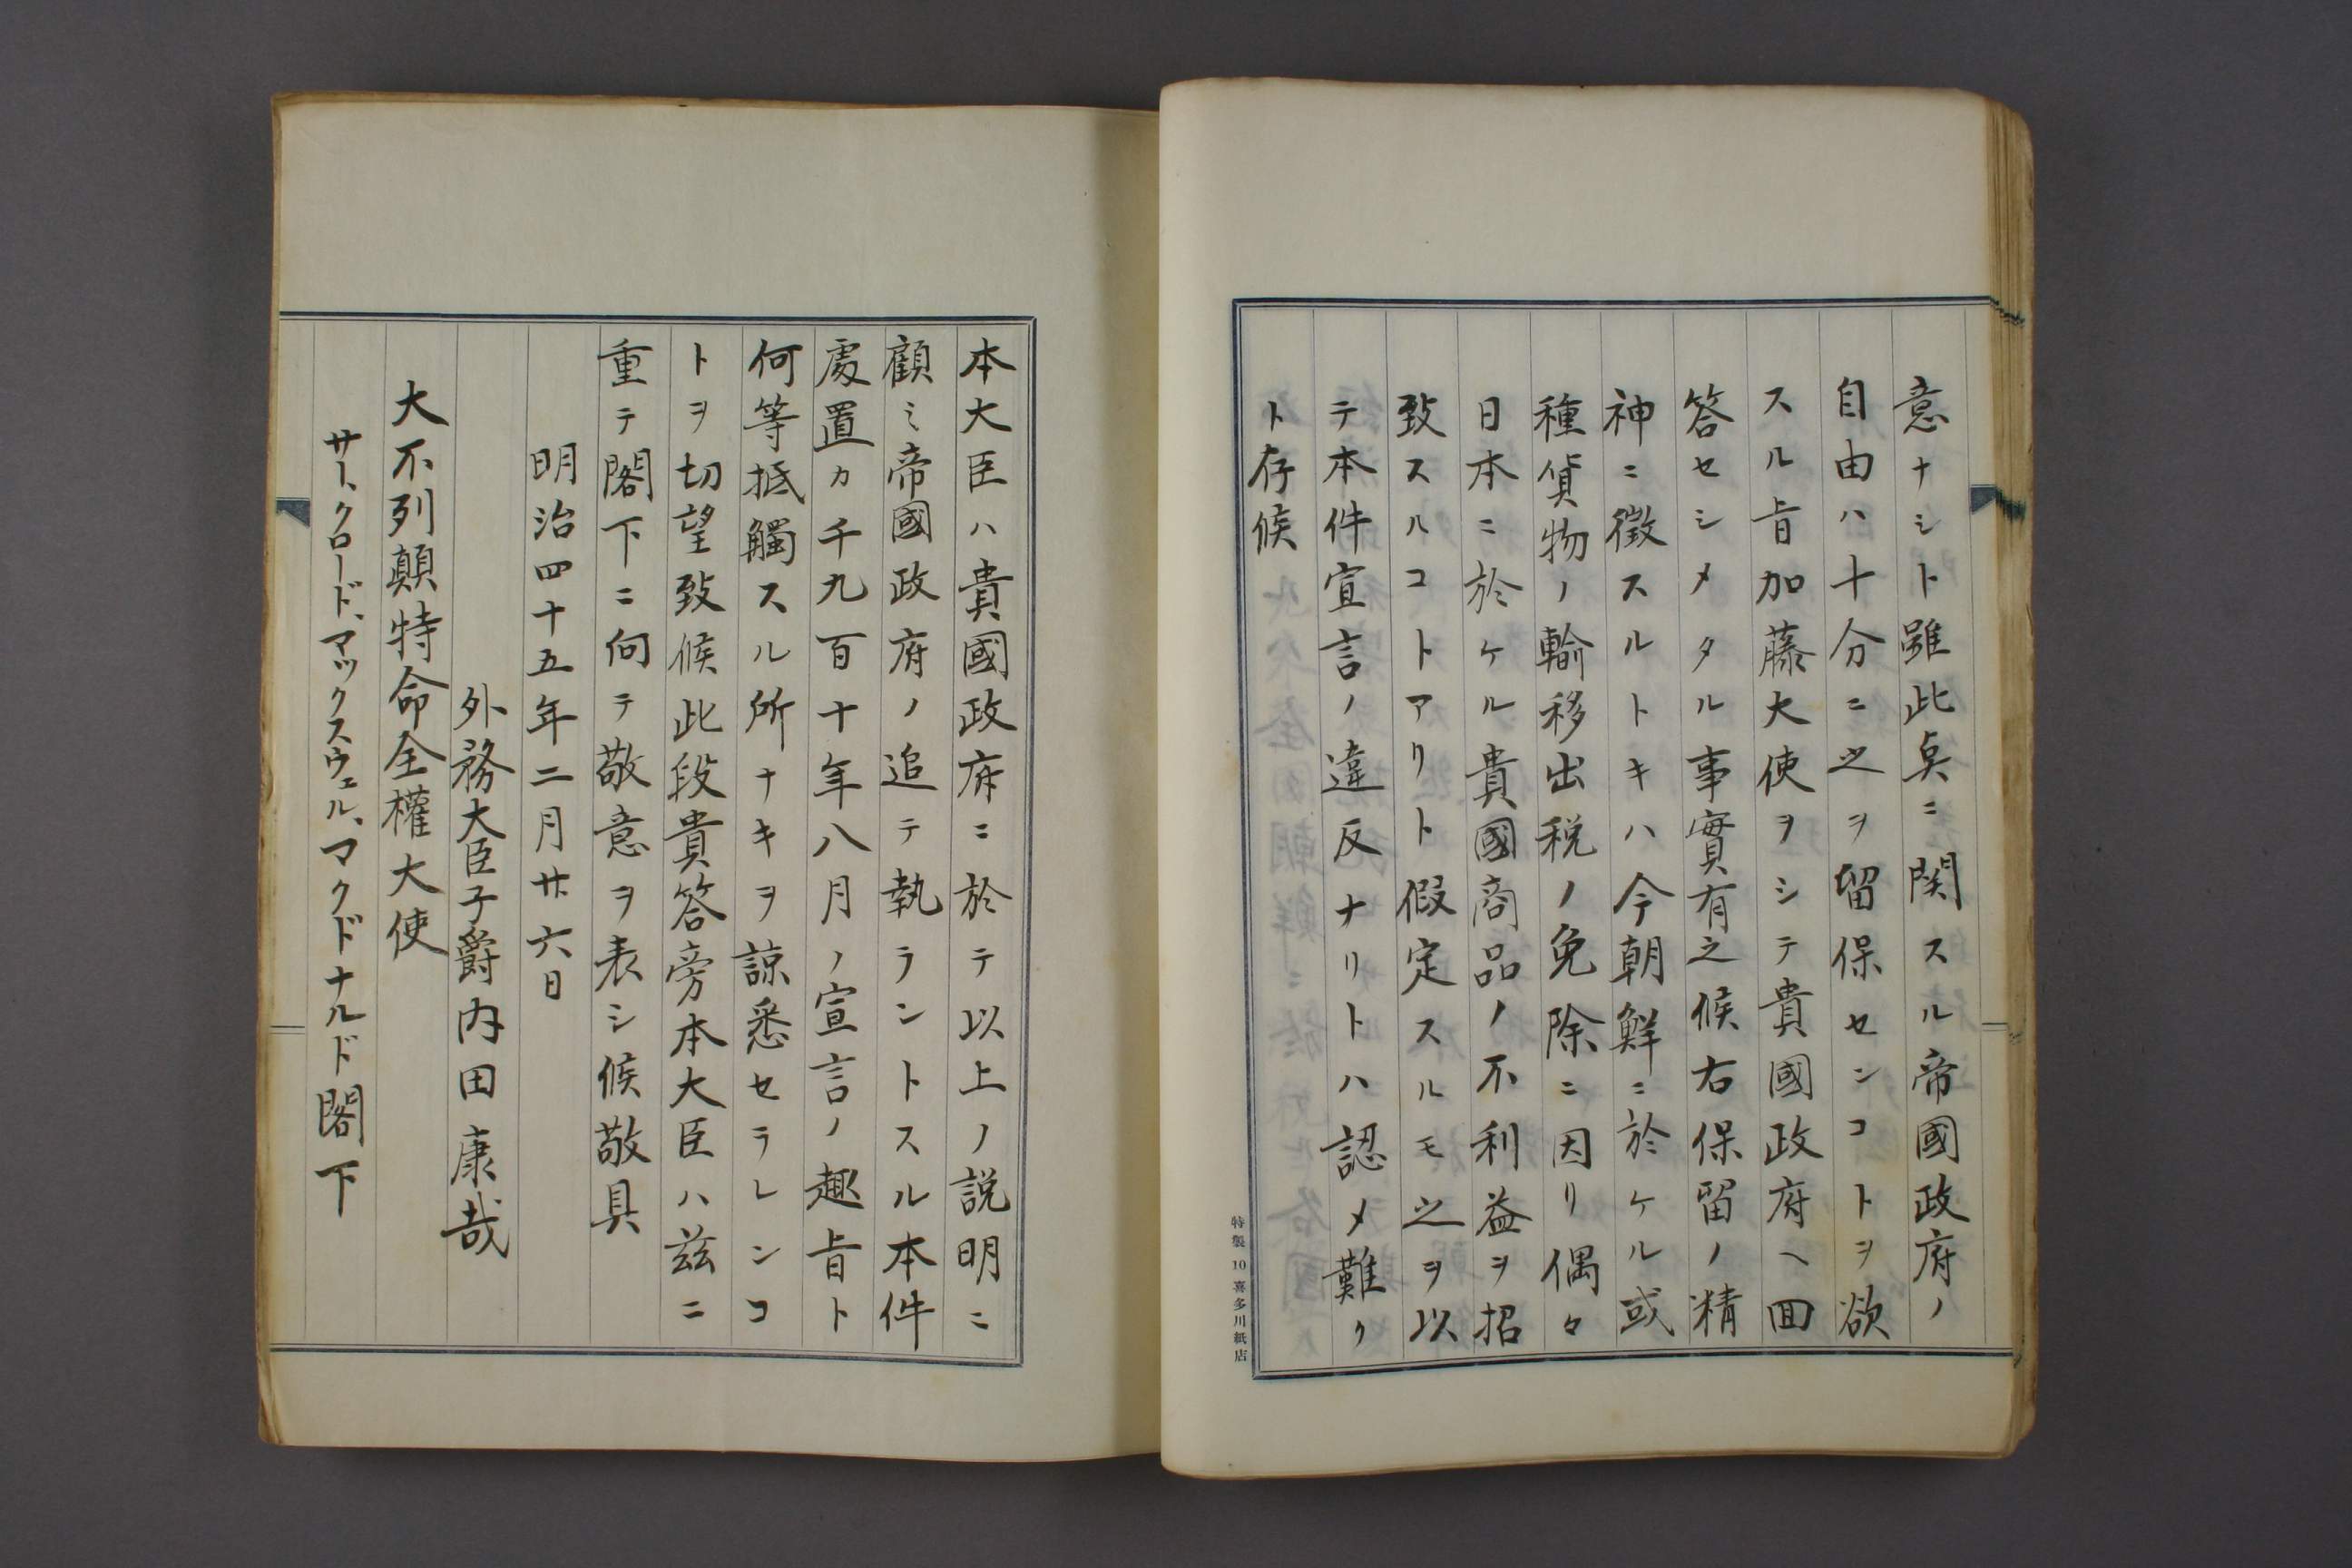 意ナシト雖此点ニ関スル帝國政府ノ
自由ハ十分ニ之ヲ留保センコトヲ欲
スル旨加藤大使ヲシテ貴國政府ヘ回
答セシメタル事實有之候右保留ノ精
神ニ徴スルトキハ今朝鮮ニ於ケル或
種貨物ノ輸移出税ノ免除ニ因リ偶々
日本ニ於ケル貴國商品ノ不利益ヲ招
致スルコトアリト假定スルモ之ヲ以
テ本件宣言ノ違反ナリトハ認メ難ク
ト存候
特製 10 喜多川紙店
本大臣ハ貴國政府ニ於テ以上ノ説明ニ
顧ミ帝國政府ノ追テ執ラントスル本件
處置カ千九百十年八月ノ宣言ノ趣旨ト
何等抵觸スル所ナキヲ諒悉セラレンコ
トヲ切望致候此段貴答旁本大臣ハ茲ニ
重テ閣下ニ向テ敬意ヲ表シ候敬具
明治四十五年二月廿六日
外務大臣子爵内田康哉
大不列顛特命全權大使
サー、クロード、マックスウェル、マクドナルド閣下